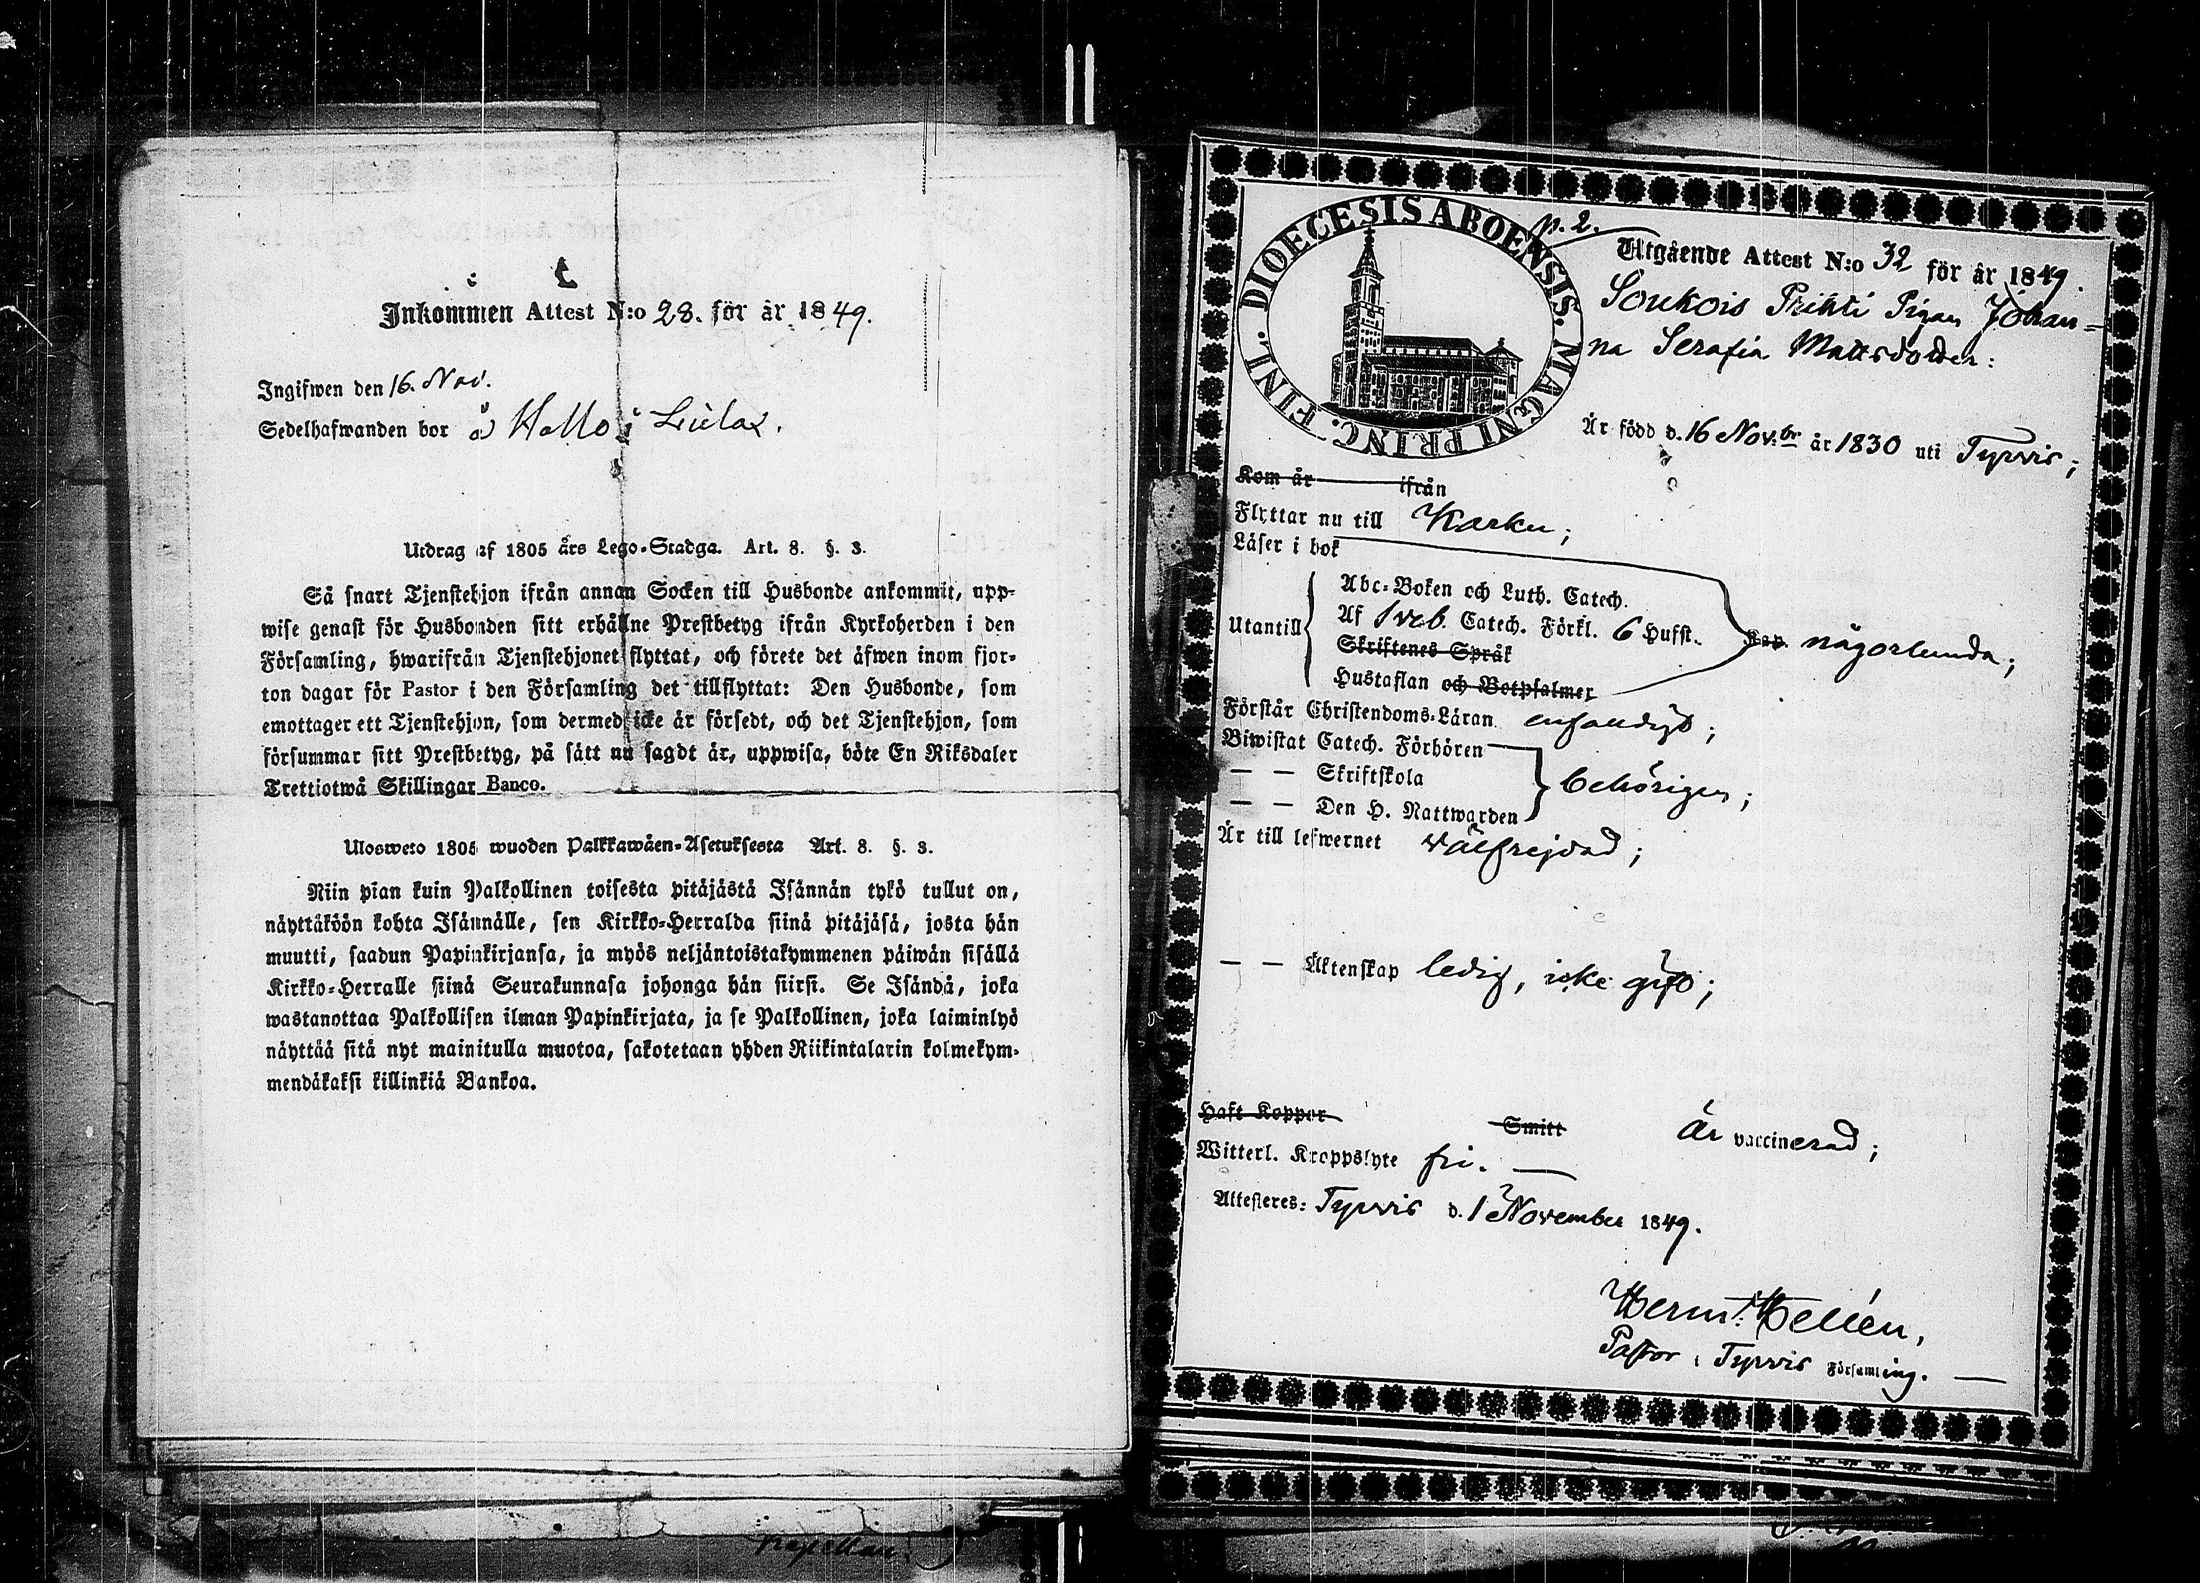 Inkommen Attest N:o 28. för år 1849.
Ingifwen den 16. Nov.
Sedelhafwanden bor å
Utdrag af 1805 års Lego-Stadga. Art. 8. §. 3.
Så snart Tjenstehjon ifrån annan Socken till Husbonde ankommit, upp-
wise genast för Husbonden sitt erhållne Prestbetyg ifrån Kyrkoherden i den
Församling, hwarifrån Tjenstehjonet flyttat, och förete det äfwen inom fjor-
ton dagar för Pastor i den Församling det tillflyttat: Den Husbonde, som
emottager ett Tjenstehjon, som dermed icke är försedt, och det Tjenstehjon, som
försummar sitt Prestbetyg, på sätt nu sagdt är, uppwisa, böte En Riksdaler
Trettiotwå Skillingar Banco.
Ulosweto 1805 wuoden Palkkawäen-Asetuksesta Art. 8. §. 3.
Niin pian kuin Palkollinen toisesta pitäjästä Isännän tykö tullut on,
näyttäköön kohta Isännälle, sen Kirkko-Herralda siinä pitäjäsä, josta hän
muutti, saadun Papinkirjansa, ja myös neljäntoistakymmenen päiwän sisällä
Kirkko-Herralle siinä Seurakunnasa johonga hän siirsi. Se Isändä, joka
wastanottaa Palkollisen ilman Papinkirjata, ja se Palkollinen, joka laiminlyö
näyttää sitä nyt mainitulla muotoa, sakotetaan yhden Riikintalarin kolmekym-
mendäkaksi killinkiä Bankoa.
DIOECESIS ABOENSIS. MAGNI PRINC. FINL.
p. 2.
Utgående Attest N:o 32 för år 1849.
Soukois Prihti Pigan Johan-
na Serafia Mattsdotter:
Är född d. 16 Nov:br år 1830 uti Tyrvis;
Kom år ifrån
Flyttar nu till Karku;
Läser i bok
Utantill
Abc-Boken och Luth. Catech.
Af Sveb. Catech. Förkl. 6 Hufst.
Skriftenes Språk
Hustaflan och Botpsalmer
Kap. någorlunda;
Förstår Christendoms-Läran enfaldigt;
Biwistat Catech. Förhören
— — Skriftskola
— — Den H. Nattwarden
behörigen;
Är till lefwernet välfrejdad;
— — Äktenskap ledig, icke gift;
Haft Koppor Smitt Är vaccinerad;
Witterl. Kroppslyte fri. —
Attesteres: Tyrvis d. 1 November 1849.
Herm: Hellén,
Pastor i Tyrvis Församling. —
Kapellan.